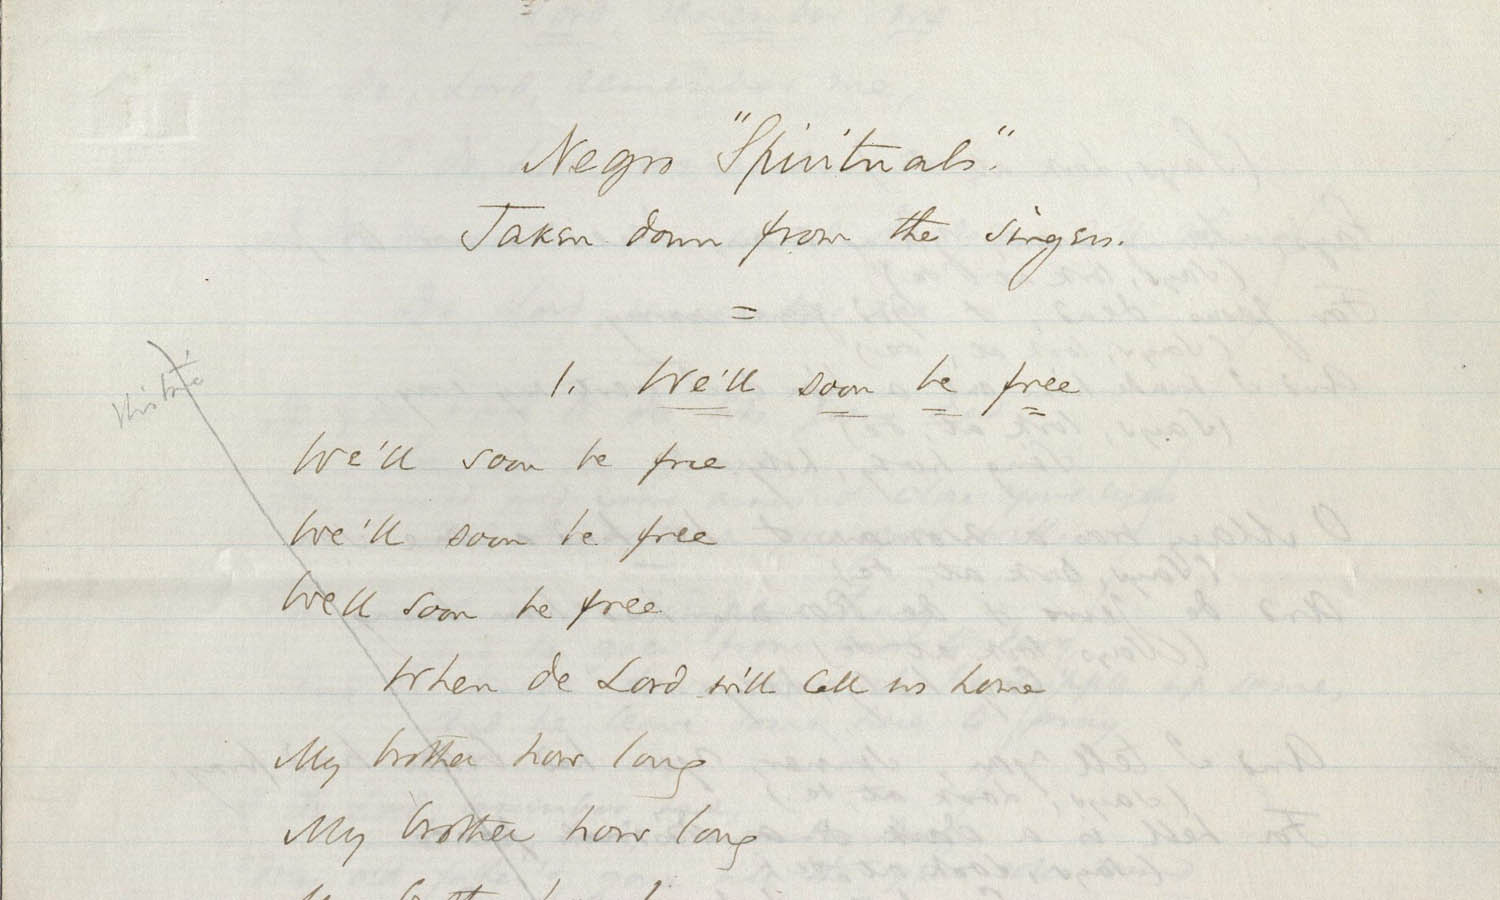 Negro "Spirituals".
Taken down from the singers.
=
1. We'll soon be free
We'll soon be free
We'll soon be free
We'll soon be free
When de Lord will call us home
My brother how long
My brother how long
My brother how l